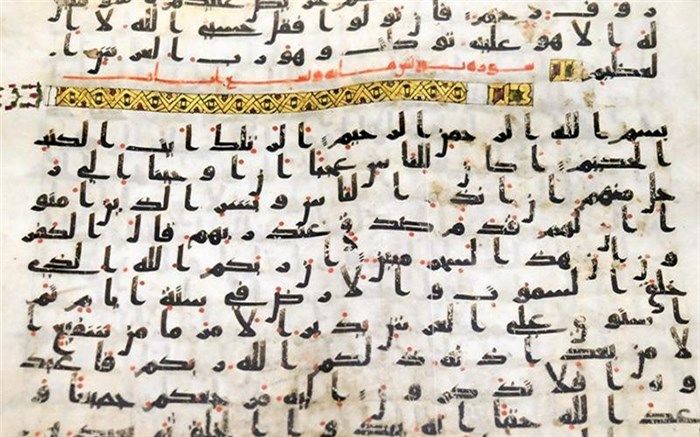 روف رحيم فان تولوا فقل حسبي الله لا ا
له الا هو عليه توكلت وهو رب العرش ا
لعظيم
سورة يونس مائة وتسع ايات
بسم الله الرحمن الرحيم الر تلك ايت الكتب
الحكيم اكان للناس عجبا ان اوحينا الى ر
جل منهم ان انذر الناس وبشر الذين امنو
ا ان لهم قدم صدق عند ربهم قال الكفر
ون ان هذا لسحر مبين ان ربكم الله الذي
خلق السموت والارض في ستة ايام ثم
استوى على العرش يدبر الامر ما من شفيع ا
لا من بعد اذنه ذلكم الله ربكم فاعبد
وه افلا تذكرون اليه مرجعكم جميعا و
عد الله حقا انه يبدوا الخلق ثم